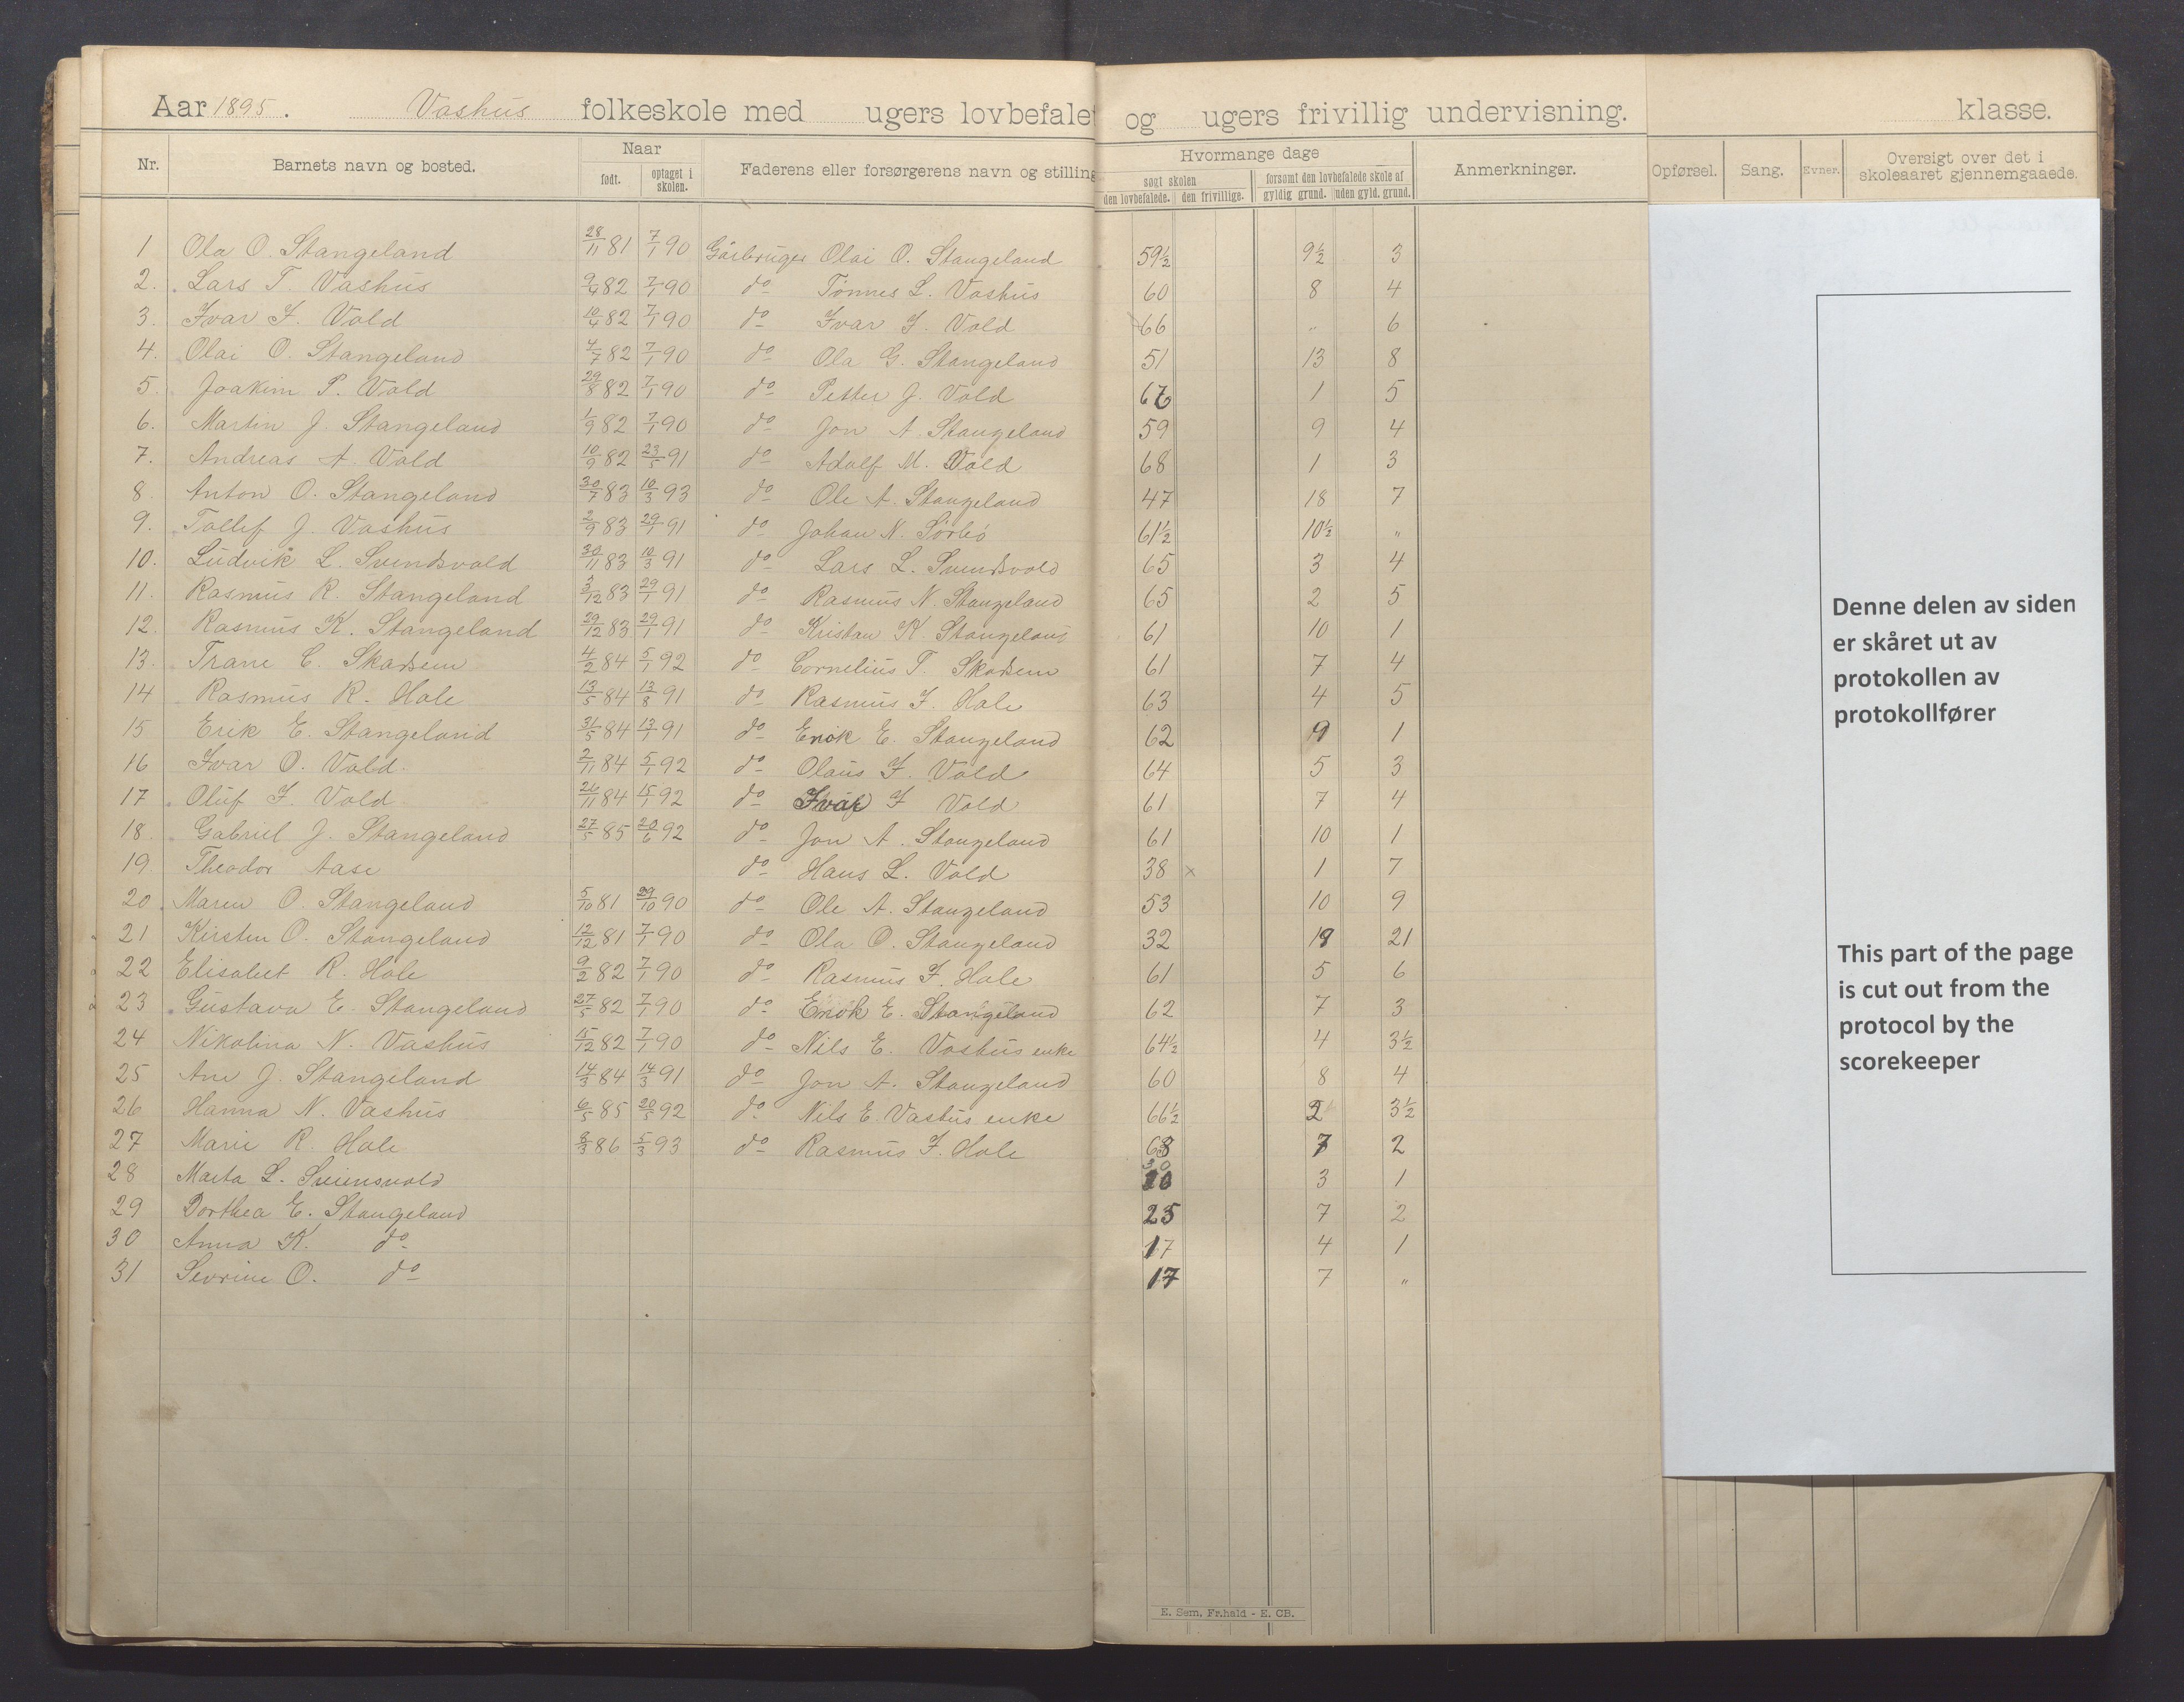 Aar 1895. Vashus folkeskole med ugers lovbefalet og ugers frivillig undervisning. klasse.
Nr. Barnets navn og bosted. Naar født. optaget i skolen. Faderens eller forsørgerens navn og stilling Hvormange dage søgt skolen den lovbefalede. den frivillige. forsømt den lovbefalede skole af gyldig grund. uden gyld. grund. Anmerkninger. Opførsel. Sang. Evner. Oversigt over det i skoleaaret gjennemgaaede.
1 Ola O. Stangeland 28/11 81 7/1 90 Gårbruger Olai O. Stangeland 59½ 9½ 3
2. Lars T. Vashus 9/4 82 7/1 90 do Tönnes L. Vashus 60 8 4
3. Ivar I. Vold 10/4 82 7/1 90 do Ivar I. Vold 66 " 6
4. Olai O. Stangeland 4/7 82 7/1 90 do Ola G. Stangeland 51 13 8
5. Joakim P. Vold 29/8 82 7/1 90 do Petter J. Vold 67 1 5
6. Martin J. Stangeland 1/9 82 7/1 90 do Jon A. Stangeland 59 9 4
7. Andreas A. Vold 10/9 82 23/5 91 do Adolf M. Vold 68 1 3
8. Anton O. Stangeland 30/7 83 10/3 93 do Ole A. Stangeland 47 18 7
9. Tollef J. Vashus 2/9 83 29/1 91 do Johan N. Sörbö 61½ 10½ "
10. Ludvik L. Svendsvold 30/11 83 10/3 91 do Lars L. Svendsvold 65 3 4
11. Rasmus R. Stangeland 3/12 83 29/1 91 do Rasmus N. Stangeland 65 2 5
12. Rasmus K. Stangeland 29/12 83 29/1 91 do Kristan K. Stangeland 61 10 1
13. Trane C. Skadsem 4/2 84 5/1 92 do Cornelius T. Skadsem 61 7 4
14 Rasmus R. Hole 13/5 84 12/8 91 do Rasmus I. Hole 63 4 5
15 Erik E. Stangeland 31/5 84 13/1 91 do Enok E. Stangeland 62 9 1
16 Ivar O. Vold. 2/11 84 5/1 92 do Olaus I. Vold 64 5 3
17 Oluf I. Vold 26/11 84 15/1 92 do Ivar I Vold 61 7 4
18. Gabriel J. Stangeland 27/5 85 20/6 92 do Jon A. Stangeland 61 10 1
19. Theodor Aase do Hans L. Vold 38 x 1 7
20 Maren O. Stangeland 5/10 81 29/10 90 do Ole A. Stangeland 53 10 9
21 Kirsten O. Stangeland 12/12 81 7/1 90 do Ola O. Stangeland 32 19 21
22 Elisabet R. Hole 9/2 82 7/1 90 do Rasmus I. Hole 61 5 6
23 Gustava E. Stangeland 27/5 82 7/1 90 do Enok E. Stangeland 62 7 3
24 Nikolina N. Vashus 15/12 82 7/1 90 do Nils E. Vashus enke 64½ 4 3½
25 Ane J. Stangeland 14/3 84 14/3 91 do Jon A. Stangeland 60 8 4
26 Hanna N. Vashus 6/5 85 20/5 92 do Nils E. Vashus enke 66½ 2 3½
27 Marie R. Hole 8/3 86 5/3 93 do Rasmus I. Hole 63 7 2
28 Marta L. Sveinsvold 3 1
29 Dorthea E. Stangeland 25 7 2
30 Anna K. do 17 4 1
31 Sevrine O. do 17 7 "
E. Sem, Fr.hald - E. CB.
Denne delen av siden
er skåret ut av
protokollen av
protokollfører
This part of the page
is cut out from the
protocol by the
scorekeeper